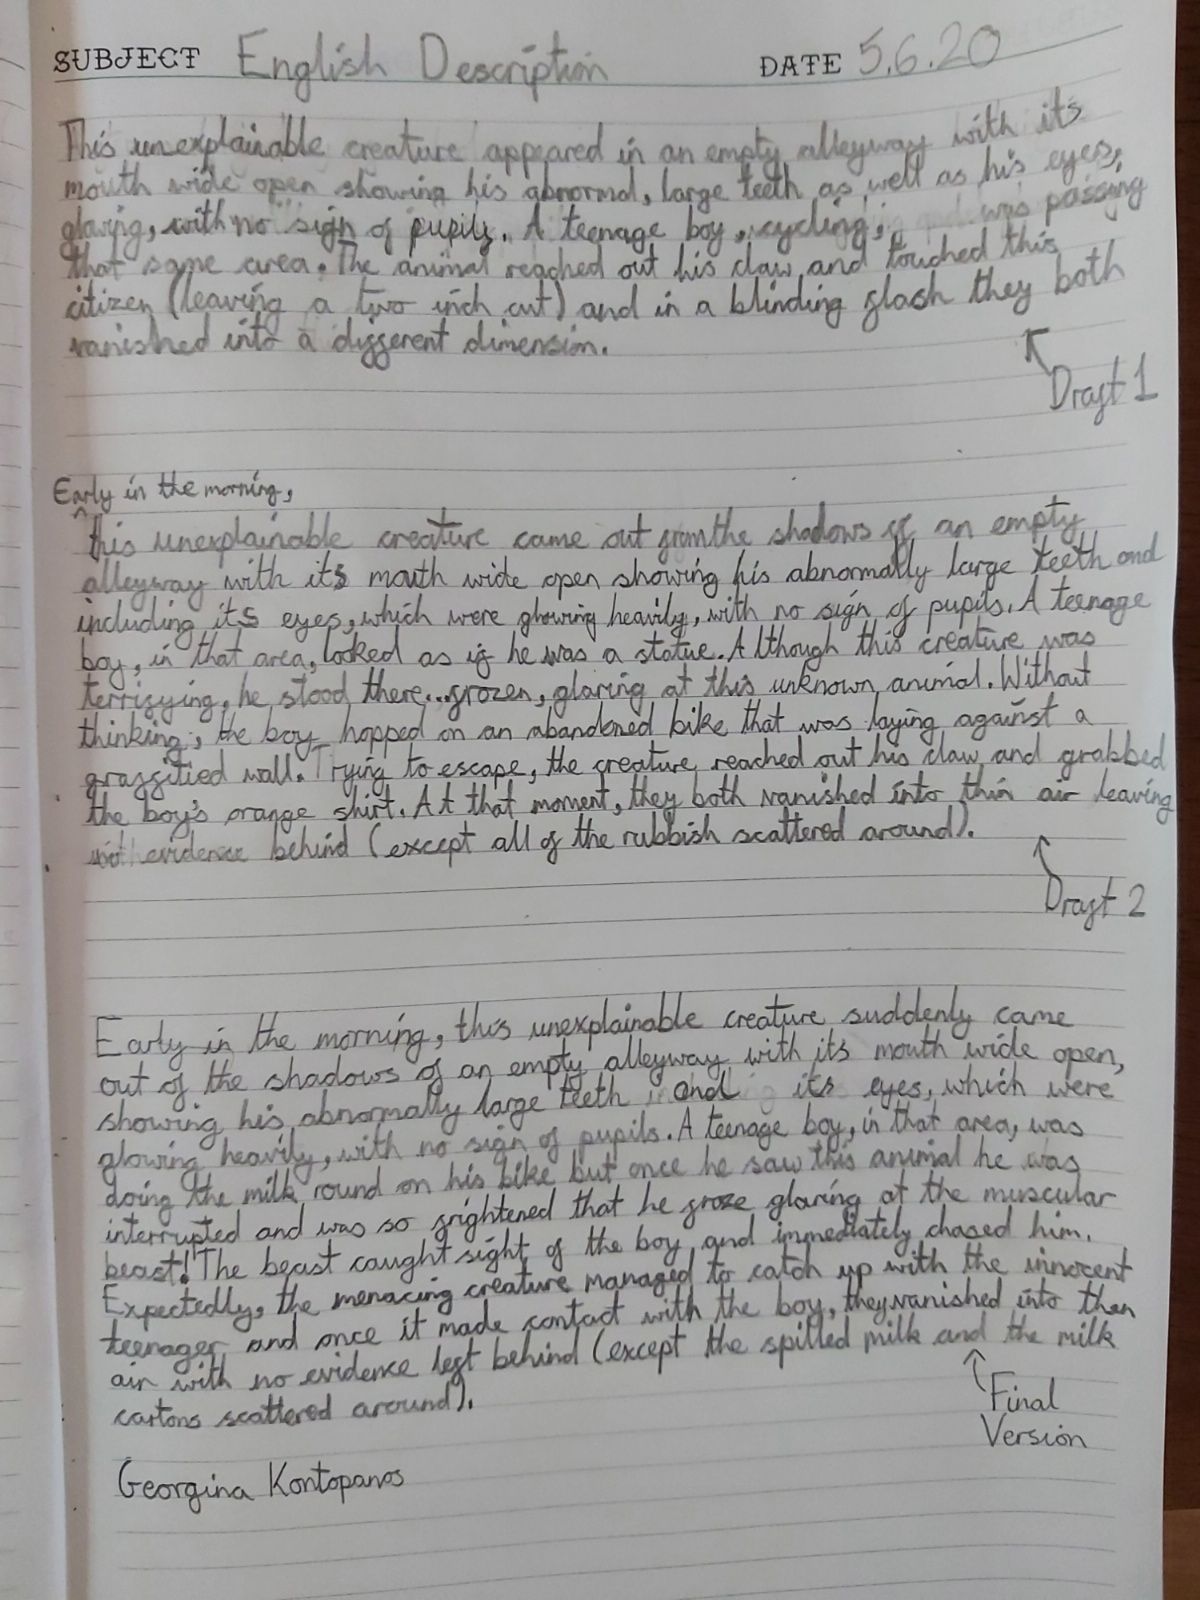 SUBJECT English Description DATE 5.6.20
This unexplainable creature appeared in an empty alleyway with its
mouth wide open showing his abnormal, large teeth as well as his eyes,
glaring, with no sign of pupils. A teenage boy, cycling, was passing
that same area. The animal reached out his claw and touched this
citizen (leaving a two inch cut) and in a blinding flash they both
vanished into a different dimension.
Draft 1
Early in the morning,
this unexplainable creature came out from the shadows of an empty
alleyway with its mouth wide open showing his abnormally large teeth and
including its eyes, which were glowing heavily, with no sign of pupils. A teenage
boy, in that area, looked as if he was a statue. Although this creature was
terrifying, he stood there...frozen, glaring at this unknown animal. Without
thinking, the boy hopped on an abandened bike that was laying against a
graffitied wall. Trying to escape, the creature reached out his claw and grabbed
the boy's orange shirt. At that moment, they both vanished into thin air leaving
evidence behind (except all of the rubbish scattered around).
Draft 2
Early in the morning, this unexplainable creature suddenly came
out of the shadows of an empty alleyway with its mouth wide open,
showing his abnormally large teeth and its eyes, which were
glowing heavily, with no sign of pupils. A teenage boy, in that area, was
doing the milk round on his bike but once he saw this animal he was
interrupted and was so frightened that he froze glaring at the muscular
beast! The beast caught sight of the boy and immediately chased him.
Expectedly, the menacing creature managed to catch up with the innocent
teenager and once it made contact with the boy, they vanished into then
air with no evidence left behind (except the spilled milk and the milk
cartons scattered around).
Final
Version
Georgina Kontopanos